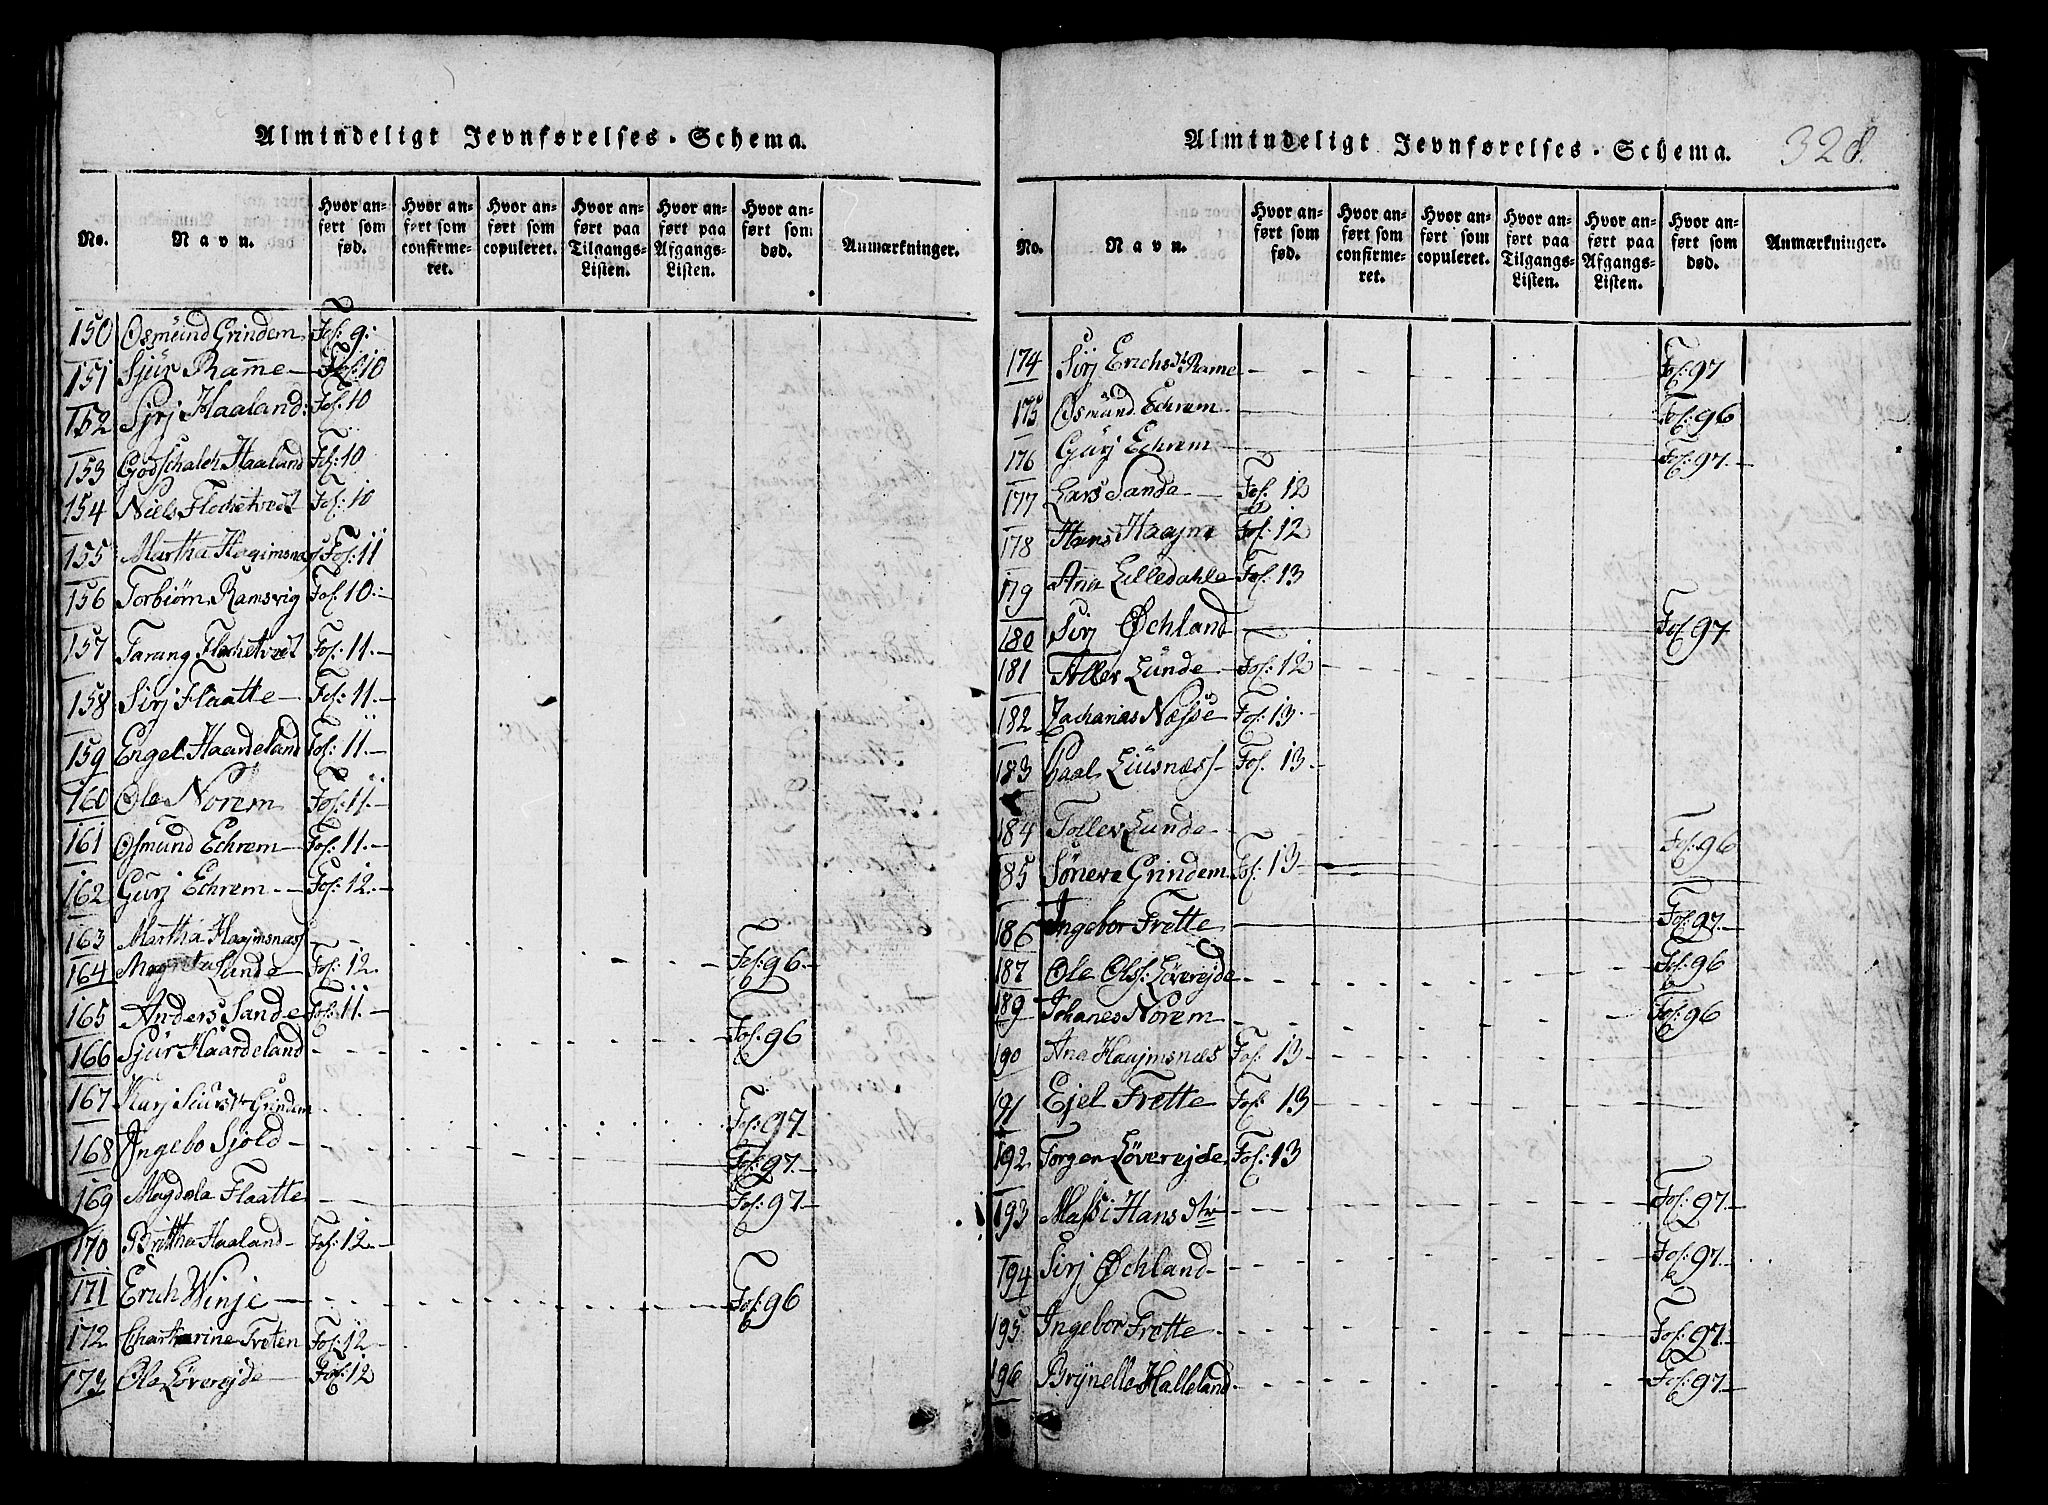 Almindeligt Jevnførelses-Schema.
No. Navn. Hvor anført som fød. Hvor anført som confirmeret. Hvor anført som copuleret. Hvor anført paa Tilgangs-Listen. Hvor anført paa Afgangs-Listen. Hvor anført som død. Anmærkninger.
150 Osmund Grindem Fol: 9:
151 Sjür Rame Fol: 10
152 Sirj Haaland: Fol: 10
153 Godschalch Haaland Fol: 10
154 Niels Flochetvedt Fol: 10
155 Martha Fol: 11
156 Torbiørn Ramsvig Fol: 10
157 Tarang Flochetvedt Fol: 11.
158 Sirj Flaatte Fol: 11.
159 Engel Haardeland Fol: 11.
160 Ole Norem Fol: 11.
161 Osmund Echrem Fol: 11.
162 Gurj Echrem Fol: 12.
163 Martha Haajmsnæss Fol: 96.
164 Lunde Fol: 12.
165 Anders Sande Fol: 11.
166 Sjür Haardeland Fol: 96
167 Karj Siursdtr Grindem Fol: 97.
168 Ingebo Sjold Fol: 97.
169 Magdela Flaatte Fol: 97.
170 Brittha Haaland Fol: 12.
171 Erich Winje Fol: 96
172 Chartarine Treten Fol: 12
173 Ole Løverejde Fol: 12
Almindeligt Jevnførelses-Schema. 328.
No. Navn. Hvor anført som fød. Hvor anført som confirmeret. Hvor anført som copuleret. Hvor anført paa Tilgangs-Listen. Hvor anført paa Afgangs-Listen. Hvor anført som død. Anmærkninger.
174 Sirj Erichsdtr Rame Fol: 97
175 Osmünd Echrem Fol: 96
176 Gurj Echrem Fol: 97.
177 Lars Sande Fol: 12
178 Hans Fol: 12
179 Ana Lilledahle Fol: 13
180 Sirj Øchland Fol: 97
181 Toller Lünde Fol: 12
182 Zacharias Næsse Fol: 13.
183 Paal Liüsnæss Fol. 13.
184 Toller Lunde Fol: 96
185 Søneva Grindem Fol: 13
186 Ingebor Frette Fol: 97.
187 Ole Olss: Løverejde Fol: 96
189 Johanes Norem Fol: 96
190 Ana Haajmsnæs Fol: 13
191 Ejel Frette Fol: 13
192 Torger Løverejde Fol: 13
193 Massi Hans dtr Fol: 97.
194 Sirj Øchland Fol: 97.
195 Ingebor Frette Fol: 97.
196 Brynello Halleland Fol: 97.